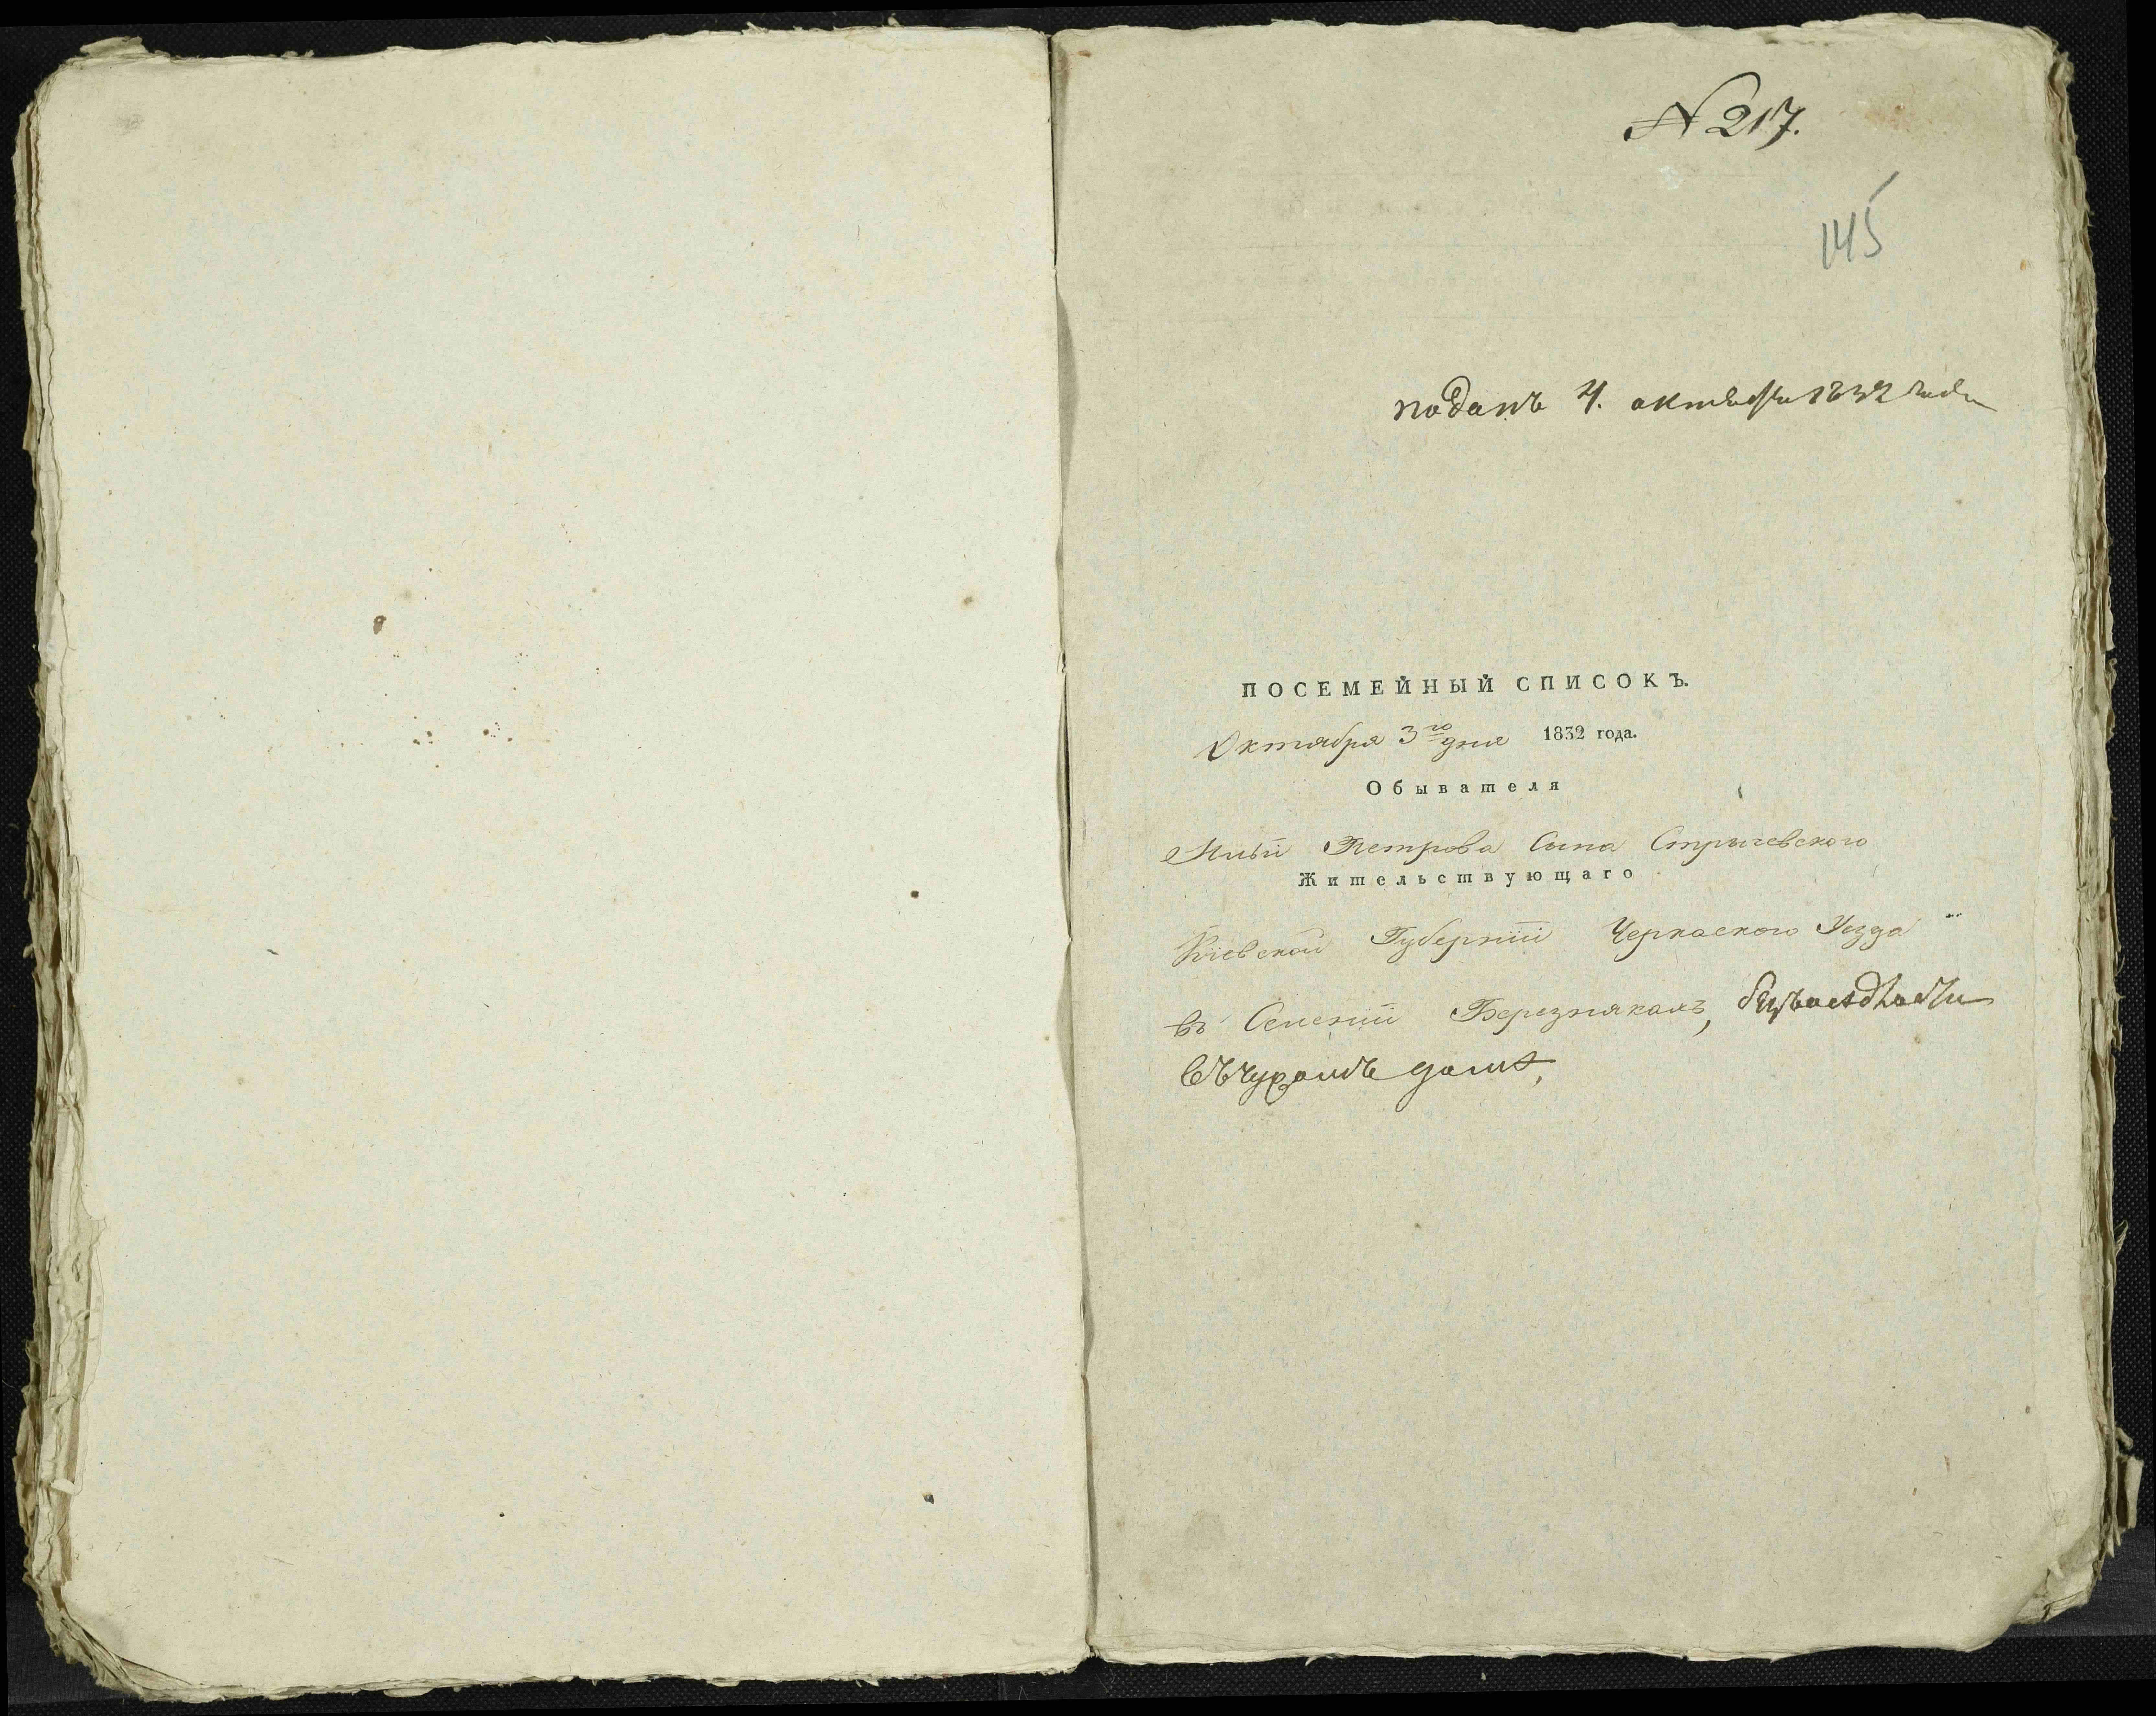 N 217.
145
поданъ 4. октября 1832 года
ПОСЕМЕЙНЫЙ СПИСОКЪ.
Октября 3го дня 1832 года.
Обывателя
Петрова Сына Стричевского
Жительствующаго
Кіевской Губерніи Черкаского Уезда
въ Селеніи Березнякахъ,
въ чужомъ доме,